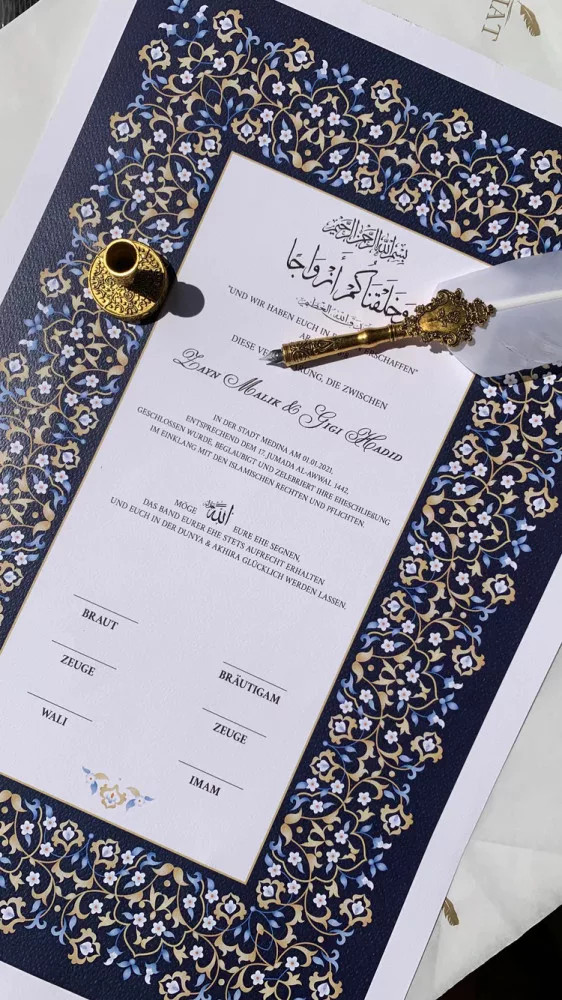 بسم الله الرحمن الرحيم
وَخَلَقْنَاكُمْ أَزْوَاجًا
"UND WIR HABEN EUCH IN
SCHAFFEN"
DIESE
DIE ZWISCHEN
ZAYN MALIK & GIGI HADID
IN DER STADT MEDINA AM 01.01.2021,
ENTSPRECHEND DEM 17. JUMADA AL-AWWAL 1442,
GESCHLOSSEN WURDE, BEGLAUBIGT UND ZELEBRIERT IHRE EHESCHLIEßUNG
IM EINKLANG MIT DEN ISLAMISCHEN RECHTEN UND PFLICHTEN.
MÖGE الله EURE EHE SEGNEN,
DAS BAND EURER EHE STETS AUFRECHT ERHALTEN
UND EUCH IN DER DUNYA & AKHIRA GLÜCKLICH WERDEN LASSEN.
BRAUT
BRÄUTIGAM
ZEUGE
ZEUGE
WALI
IMAM